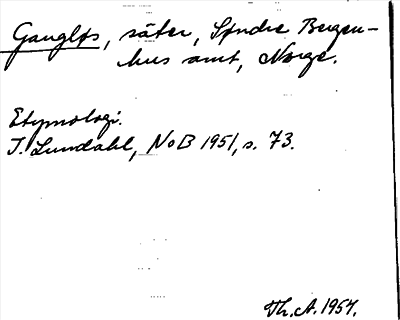 Gangløs, säter, Søndre Bergen-
hus amt, Norge.
Etymologi.
I. Lundahl, NoB 1951, s. 73.
Th. A. 1957.